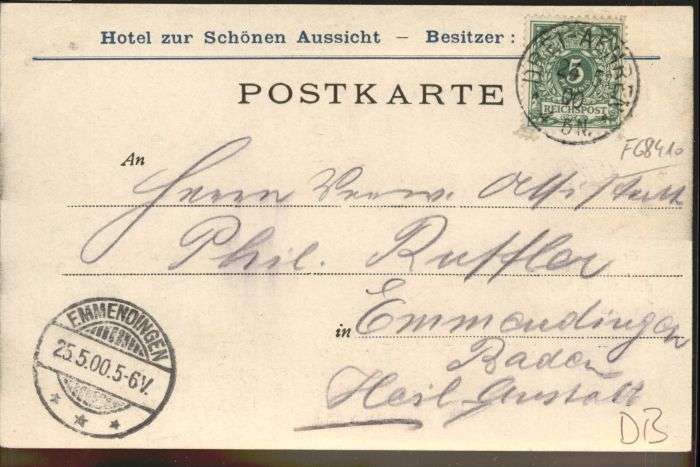 Hotel zur Schönen Aussicht – Besitzer:
POSTKARTE
5
REICHSPOST
DREI-AEHREN
5N.
F68410
An
Herrn Verw. Assistent
Phil. Ruffler
in Emmendingen
Baden
Heil-Anstalt
EMMENDINGEN
25.5.00.5-6V.
DB